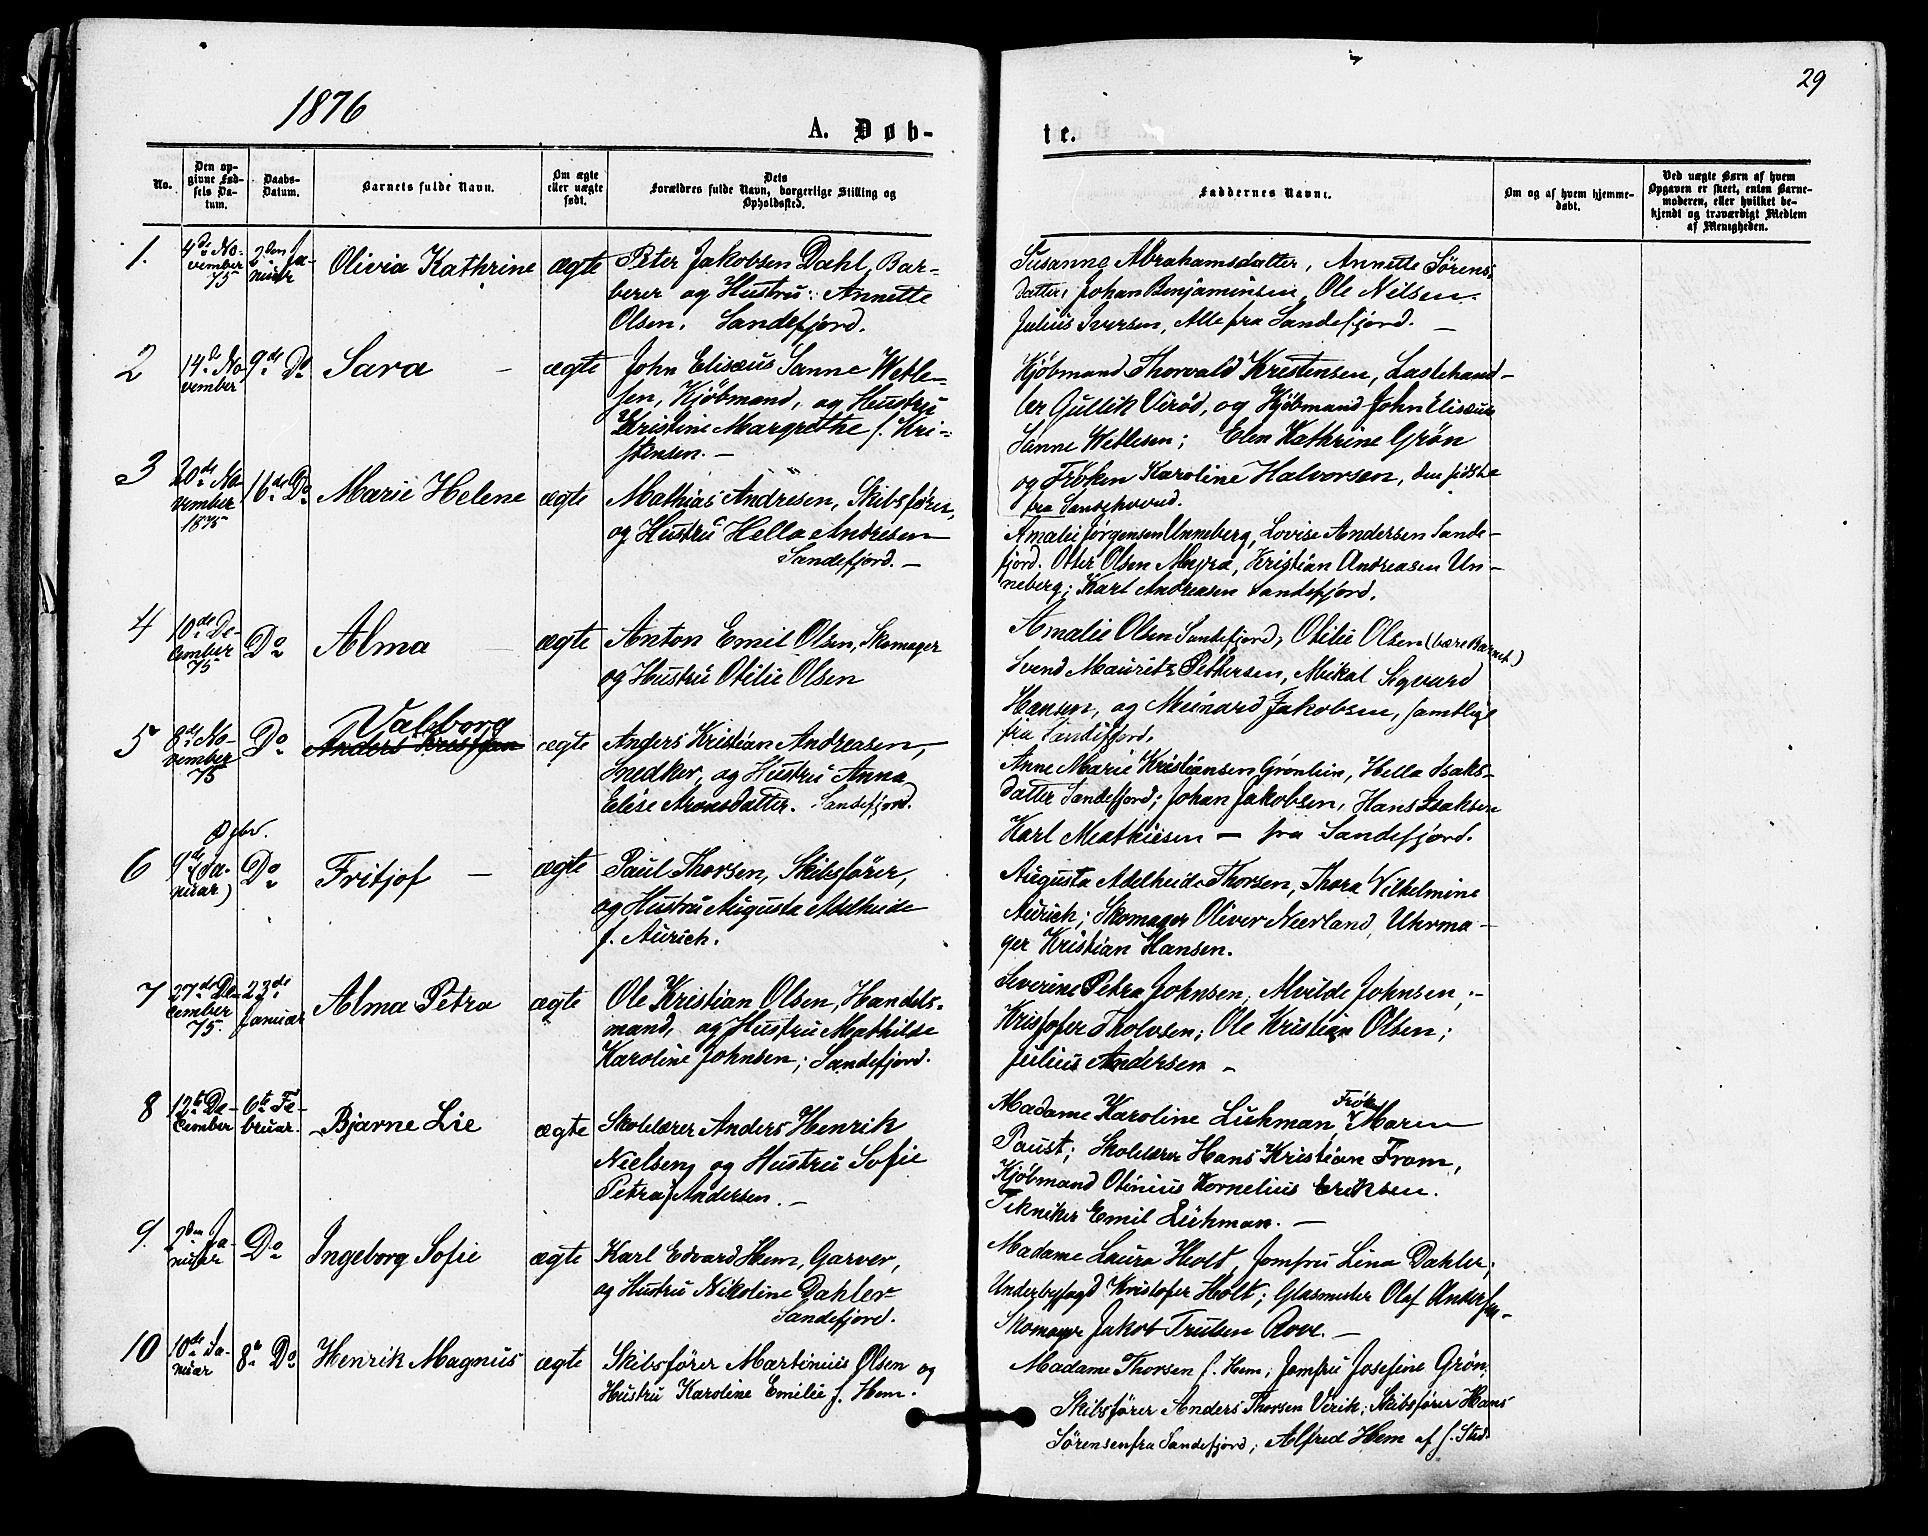 1876
29
A. Døb-
te.
No.
Den op-
givne Fød-
sels Da-
tum.
Daabs-
Datum.
Barnets fulde Navn.
Om ægte
eller uægte
født.
Dets
Forældres fulde Navn, borgerlige Stilling og
Opholdssted.
Faddernes Navne.
Om og af hvem hjemme-
døbt.
Ved uægte Børn af hvem
Opgaven er skeet, enten Barne-
moderen, eller hvilket be-
kjendt og troværdigt Medlem
af Menigheden.
1.
4de No-
vember
75
2den Ja-
nuar
Olivia Kathrine
ægte
Peter Jakobsen Dahl, Bar-
berer og Hustru: Annette
Olsen, Sandefjord.
Susanne Abrahamsdatter, Annette Sørens-
datter, Johan Benjaminsen, Ole Nilsen.
Julius Iversen, Alle fra Sandefjord. —
2
14de No-
vember
9de Do
Sara —
ægte
John Elisæus Sanne Wetle-
sen, Kjøbmand, og Hustru
Kristine Margrethe f. Kri-
stensen. —
Kjøbmand Thorvald Kristensen, Lastehand-
ler Gullik Virød, og Kjøbmand John Elisæus
Sanne Wetlesen; Elen Kathrine Grøn
og Frøken Karoline Halvorsen, den sidste
fra Sandehoved.
3
20de No-
vember
1875
16de Do
Marie Helene
ægte
Mathias Andresen, Skibsfører,
og Hustru Hella Andresen
Sandefjord. —
Amalie Jørgensen Unneberg, Lovise Andersen Sande-
fjord. Otter Olsen Myra, Kristian Andreasen Un-
neberg; Karl Andreasen Sandefjord.
4
10de De-
cember
75
Do
Alma —
ægte
Anton Emil Olsen, Skomager
og Hustru Otilie Olsen
Amalie Olsen Sandefjord, Otilie Olsen (bære Barnet)
Svend Mauritz Pettersen, Mikal Sigvard
Hansen, og Meinard Jakobsen, samtlige
fra Sandefjord.
5
8de No-
vember
75
Do
Valborg
Anders Kristian
ægte
Anders Kristian Andreasen,
Snedker, og Hustru Anna
Elise Aronsdatter. Sandefjord.
Anne Marie Kristiansen Grønlien, Hella Isaks-
datter Sandefjord; Johan Jakobsen, Hans Isaksen
Karl Mathiesen — fra Sandefjord.
6
9de (Ja-
nuar)
Do
Fritjof —
ægte
Paul Thorsen, Skibsfører,
og Hustru Augusta Adelheide
f. Aurich.
Augusta Adelheide Thorsen, Thora Vilhelmine
Aurich; Skomager Oliver Neerland, Uhrma-
ger Kristian Hansen.
7
27de De-
cember
75.
23de
Januar
Alma Petra
ægte
Ole Kristian Olsen, Handels-
mand, og Hustru Mathilde
Karoline Johnsen; Sandefjord.
Severine Petra Johnsen, Alvilde Johnsen;-
Kristofer Tholvsen; Ole Kristian Olsen;
Julius Andersen —
8
12te De-
cember
6te Fe-
bruar.
Bjarne Lie
ægte
Skolelærer Anders Henrik
Nielsen, og Hustru Sofie
Petra f. Andersen. —
Madame Karoline Luhman, Frøk. Maren
Paust; Skolelærer Hans Kristian From,
Kjøbmand Otinius Kornelius Eriksen.
Tekniker Emil Luhman. —
9.
2den Ja-
nuar
Do
Ingeborg Sofie
ægte
Karl Edvard Hem, Garver,
og Hustru Nikoline Dahler
Sandefjord.
Madame Laura Holt, Jomfru Lina Dahler;
Underbyfogd Kristofer Holt; Glasmester Olaf Andersen-
Skomager Jakob Trulsen Rove. —
10
10de Ja-
nuar
8de Do
Henrik Magnus
ægte
Skibsfører Martinius Olsen og
Hustru Karoline Emilie f. Hem.
Madame Thorsen f. Hem; Jomfru Josefine Grøn;
Skibsfører Anders Thorsen Virik; Skibsfører Hans
Sørensen fra Sandefjord; Alfred Hem af s. Sted.